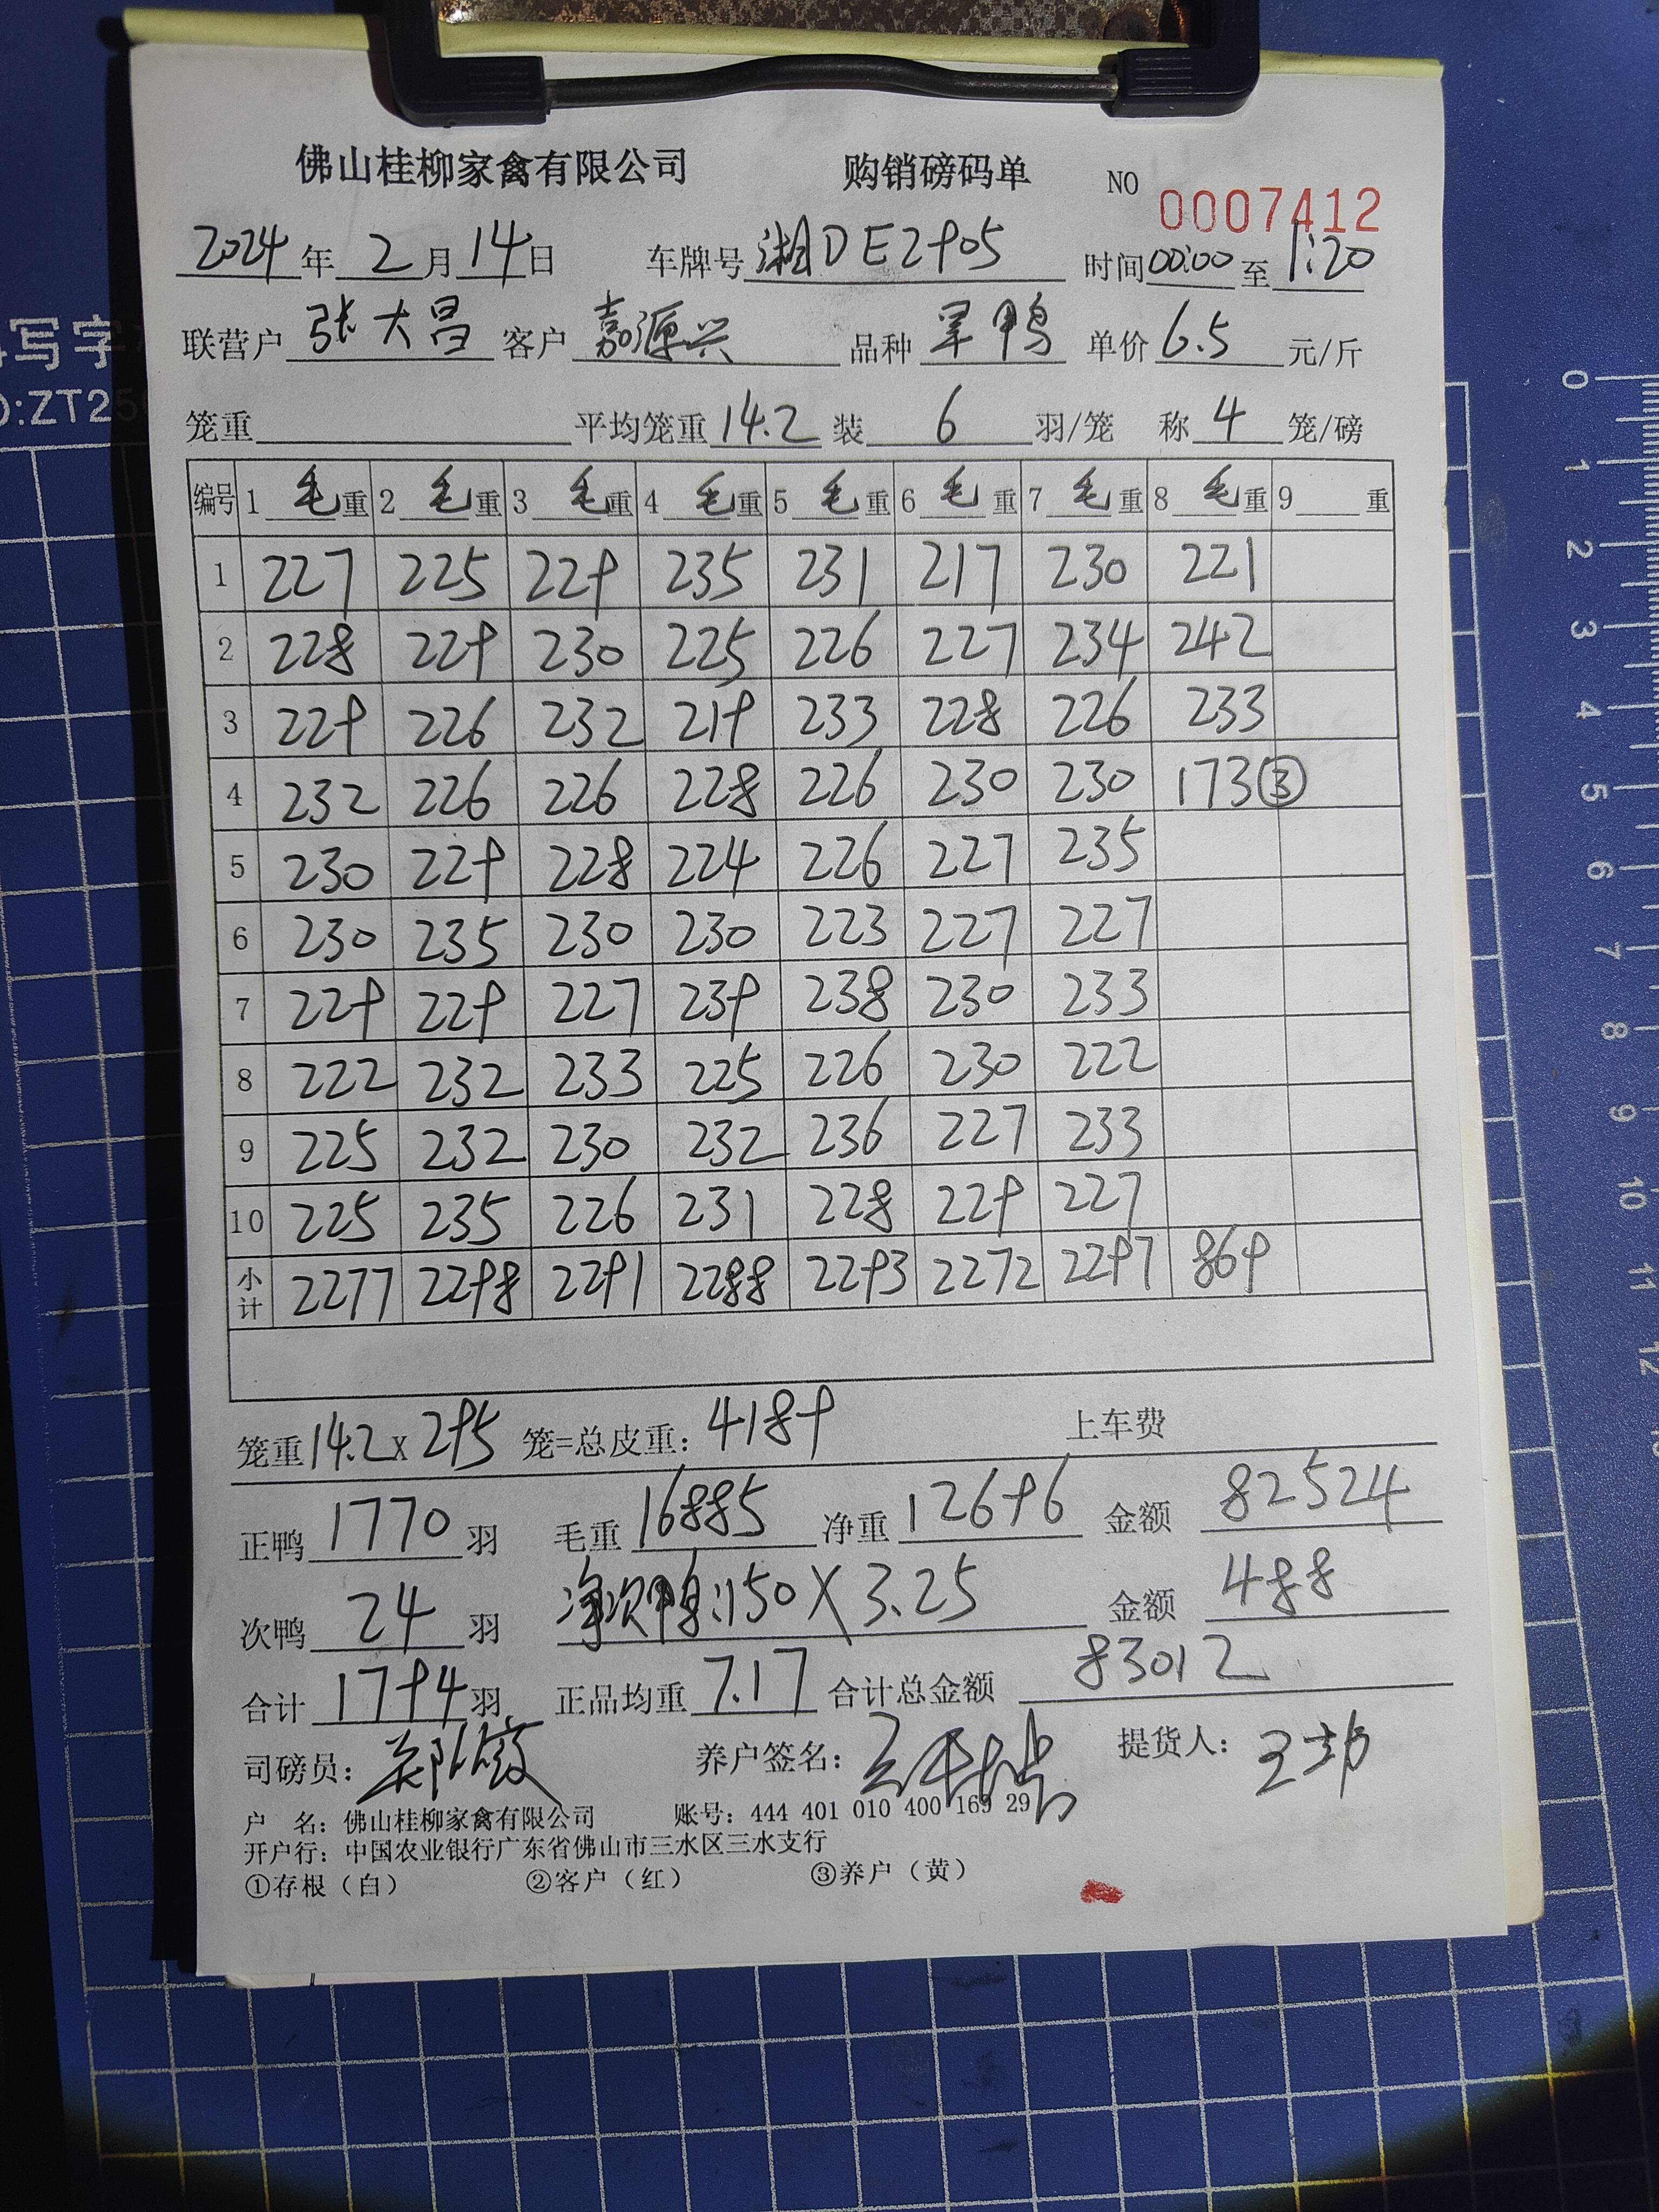 佛山桂柳家禽有限公司 购销磅码单 NO 0007412
2024年2月14日 车牌号 湘DE2905 时间00:00至1:20
联营户 张大昌 客户 嘉源兴 品种 旱鸭 单价6.5元/斤
笼重 平均笼重14.2 装 6 羽/笼 称 4 笼/磅
编号 1 毛重 2 毛重 3 毛重 4 毛重 5 毛重 6 毛重 7 毛重 8 毛重 9 重
1 227 225 229 235 231 217 230 221
2 228 229 230 225 226 227 234 242
3 229 226 232 219 233 228 226 233
4 232 226 226 228 226 230 230 173③
5 230 229 228 224 226 227 235
6 230 235 230 230 223 227 227
7 229 229 227 239 238 230 233
8 222 232 233 225 226 230 222
9 225 232 230 232 236 227 233
10 225 235 226 231 228 229 227
小计 2277 2298 2291 2288 2293 2272 2297 869
笼重14.2X295 笼=总皮重：4189 上车费
正鸭 1770 羽 毛重 16885 净重 12696 金额 82524
次鸭 24 羽 净次鸭:150X3.25 金额 488
合计 1794羽 正品均重 7.17 合计总金额 83012
司磅员： 养户签名： 提货人：
户 名：佛山桂柳家禽有限公司 账号：444 401 010 400 169 29
开户行：中国农业银行广东省佛山市三水区三水支行
①存根（白） ②客户（红） ③养户（黄）
写字
:ZT25
0
1
2
3
4
5
6
7
8
9
10
11
12